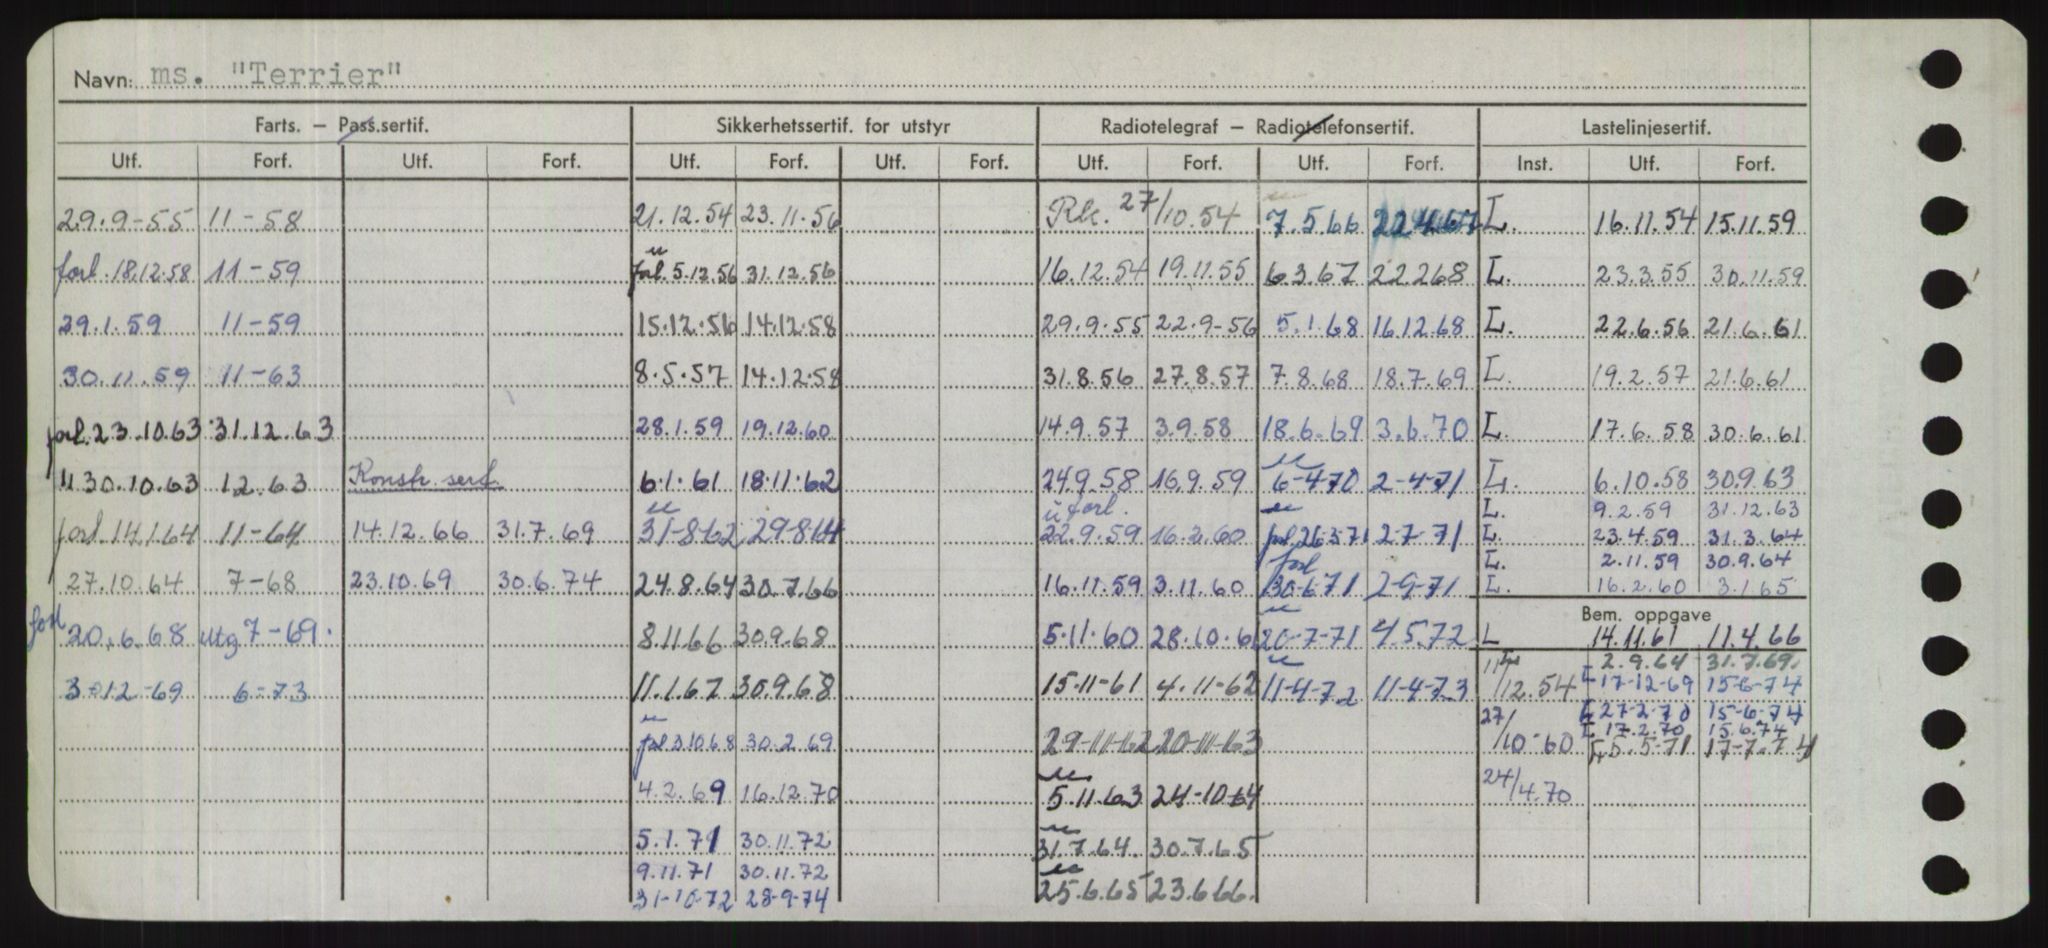 Navn: ms. "Terrier"
Farts. — Pass.sertif. Sikkerhetssertif. for utstyr Radiotelegraf — Radiotelefonsertif. Lastelinjesertif.
Utf. Forf. Utf. Forf. Utf. Forf. Utf. Forf. Utf. Forf. Utf. Forf. Inst. Utf. Forf.
29.9-55 11-58 21.12.54 23.11.56 Rk. 27/10.54 7.5.66 22.4.67 L. 16.11.54 15.11.59
forl. 18.12.58 11-59 forl. 5.12.56 31.12.56 16.12.54 19.11.55 6.3.67 22.2.68 L. 23.3.55 30.11.59
29.1.59 11-59 15.12.56 14.12.58 29.9.55 22.9-56 5.1.68 16.12.68 L. 22.6.56 21.6.61
30.11.59 11-63 8.5.57 14.12.58 31.8.56 27.8.57 7.8.68 18.7.69 L. 19.2.57 21.6.61
forl. 23.10.63 31.12.63 28.1.59 19.12.60 14.9.57 3.9.58 18.6.69 3.6.70 L. 17.6.58 30.6.61
" 30.10.63 12.63 Konstr. sert. 6.1.61 18.11.62 24.9.58 16.9.59 6-4-70 2-4-71 L. 6.10.58 30.9.63
forl. L. 9.2.59 31.12.63
forl. 14.1.64 11-64 14.12.66 31.7.69 31-8-62 29-8-64 22.9.59 16.2.60 forl. 26.3.71 2-7-71 L. 23.4.59 31.3.64
forl L. 2.11.59 30.9.64
27.10.64 7-68 23.10.69 30.6.74 24.8.64 30.7.66 16.11.59 3.11.60 30-6-71 2-9-71 L. 16.2.60 3.1.65
Bem. oppgave
forl 20.6.68 utg 7-69. 8.11.66 30.9.68 5.11.60 28.10.61 20-7-71 4.5.72 L 14.11.61 11.4.66
2.9.64 31.7.69.
3-12-69 6-73 11.1.67 30.9.68 15-11-61 4.11-62 11-4-72 11-4-73 11/12.54 L 17-12-69 15-6-74
L 27-2-70 15-6-74
L 17.2.70 15.6.74
forl 3.10.68 30.2.69 29-11-62 20-11-63 27/10-60 L 5.5-71 17-7-74
4.2.69 16.12.70 5.11.63 24-10-64 24/4.70
5.1.71 30.11.72 31.7.64. 30.7.65
9.11.71 30.11.72
31-10-72 28-9-74 25.6.65 23.6.66.